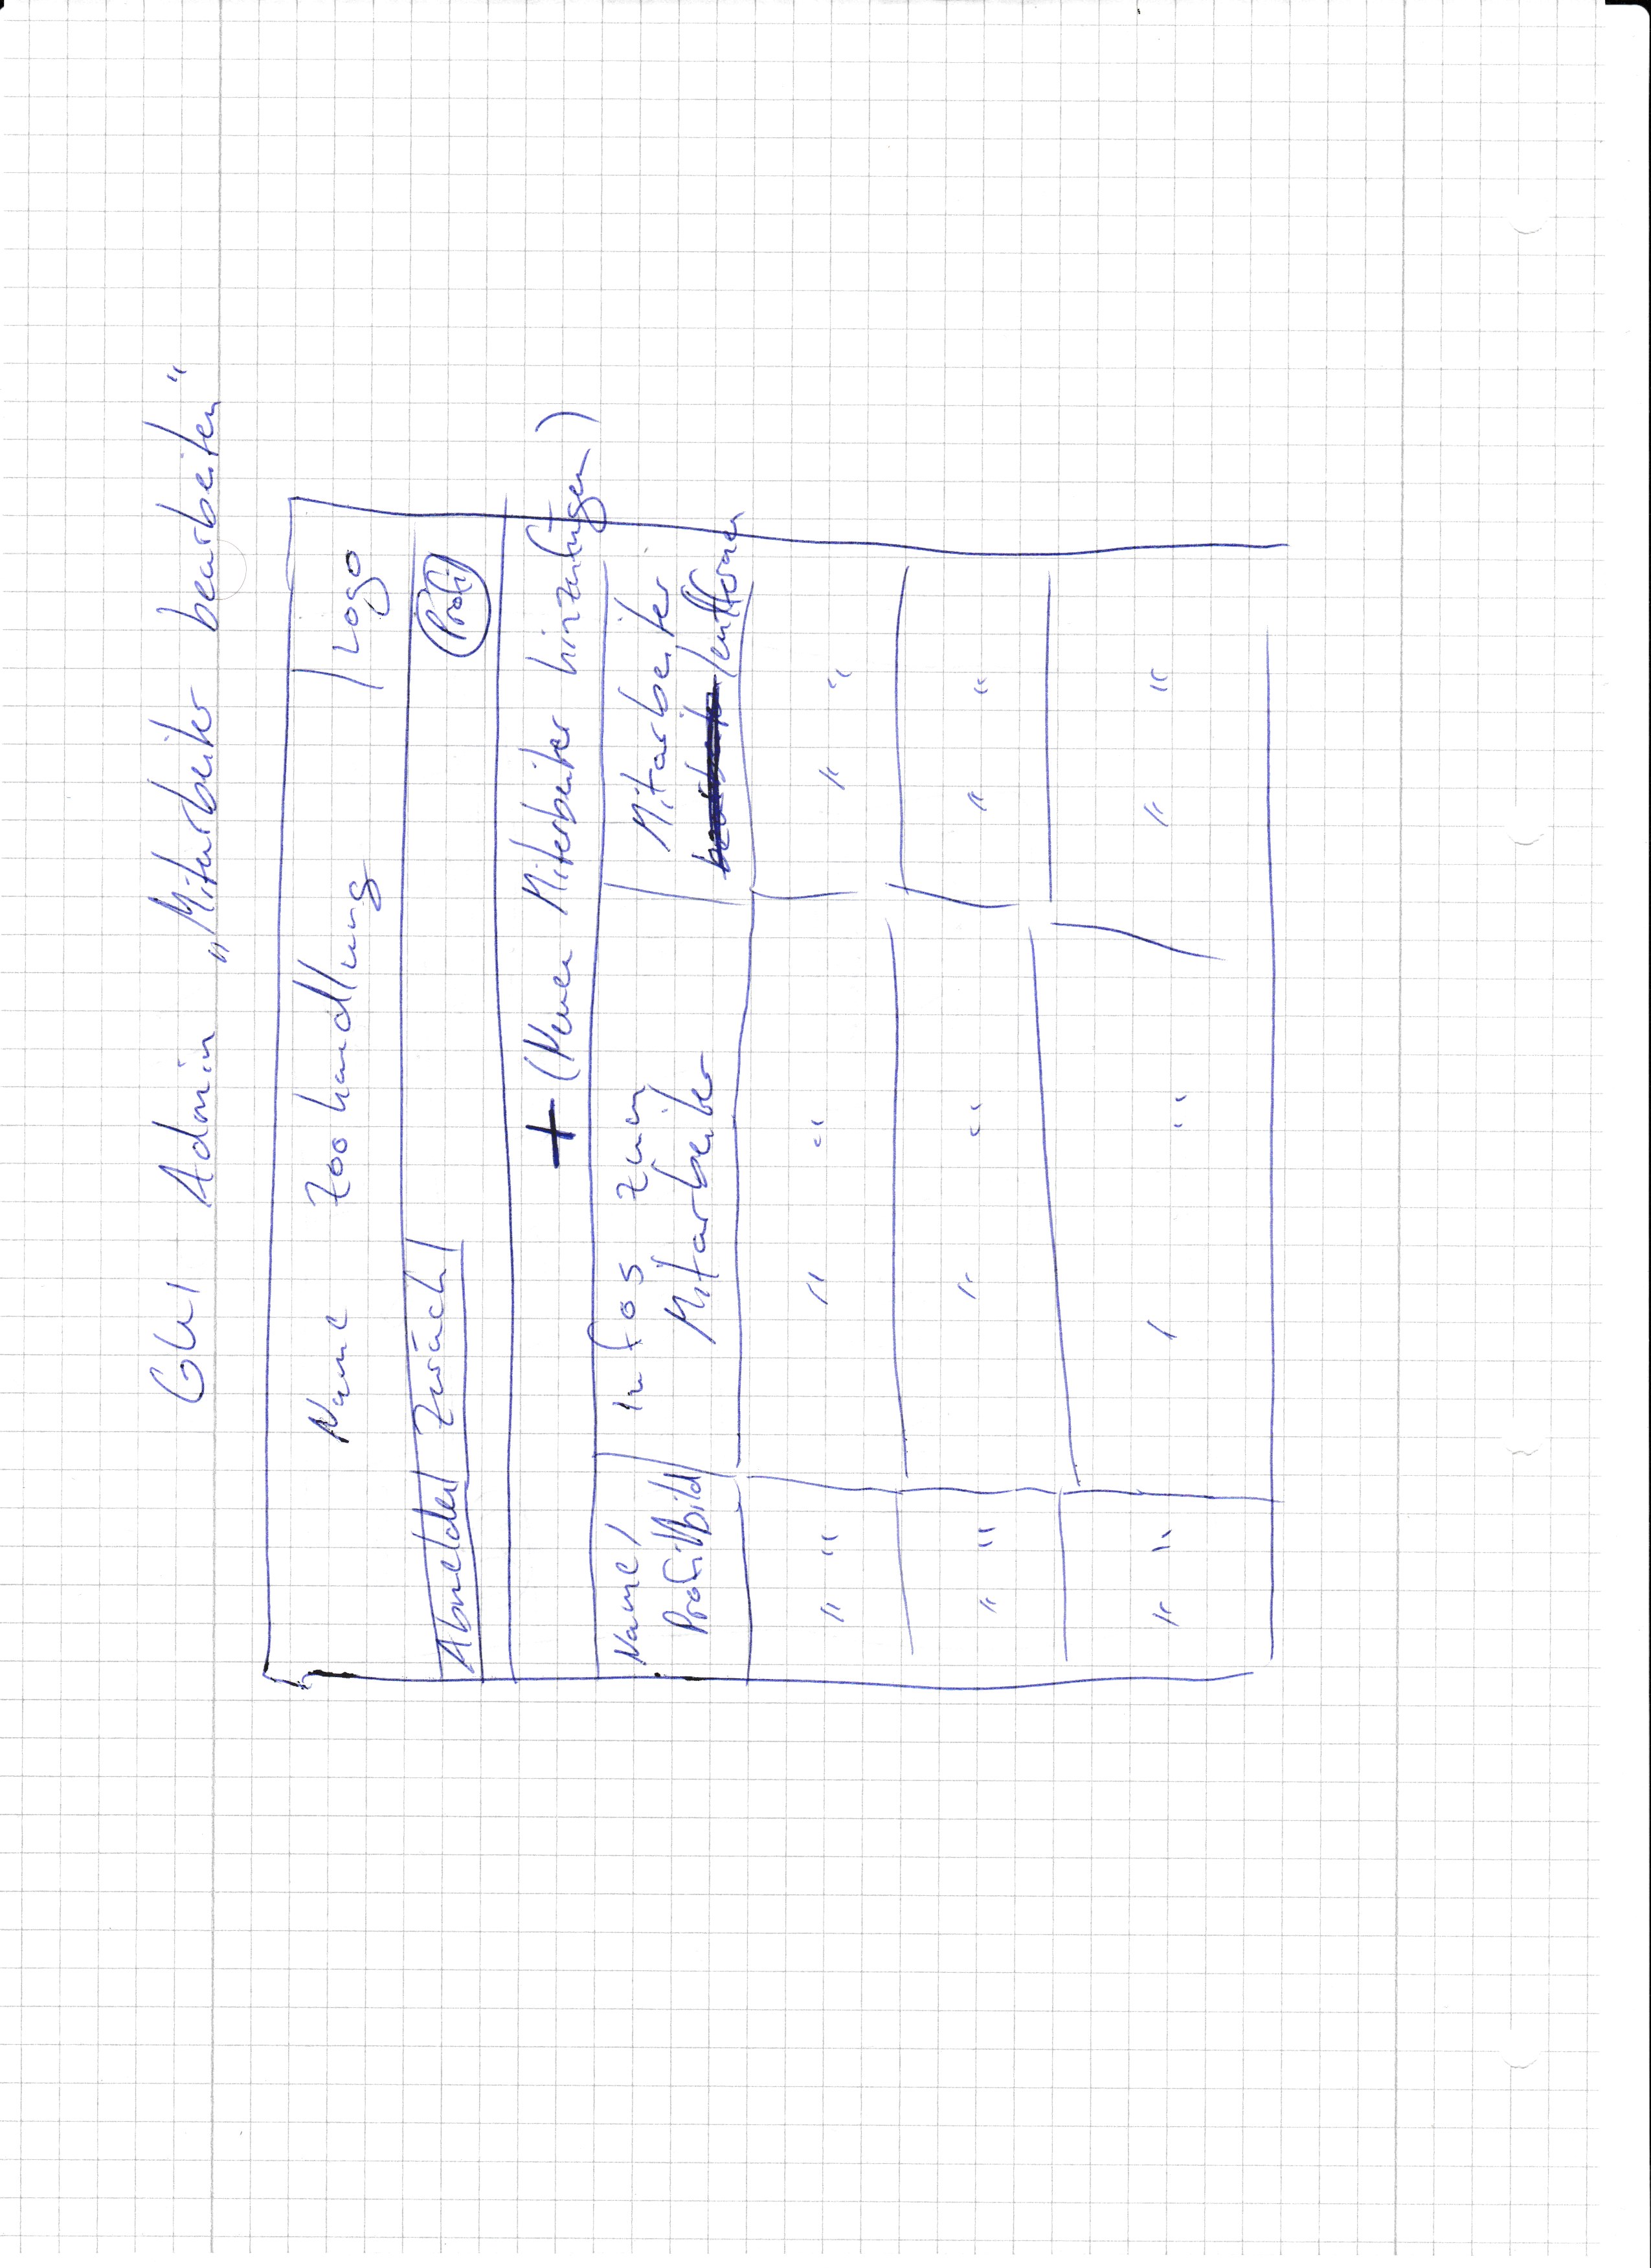 GUI Admin „Mitarbeiter bearbeiten“
Name Zoohandlung | Logo
Abmelden Zurück Profil
+ (Neuen Mitarbeiter hinzufügen)
Name/ Infos zum Mitarbeiter
Profilbild Mitarbeiter /entfernen
" " " " " "
" " " " " "
" " " " " "